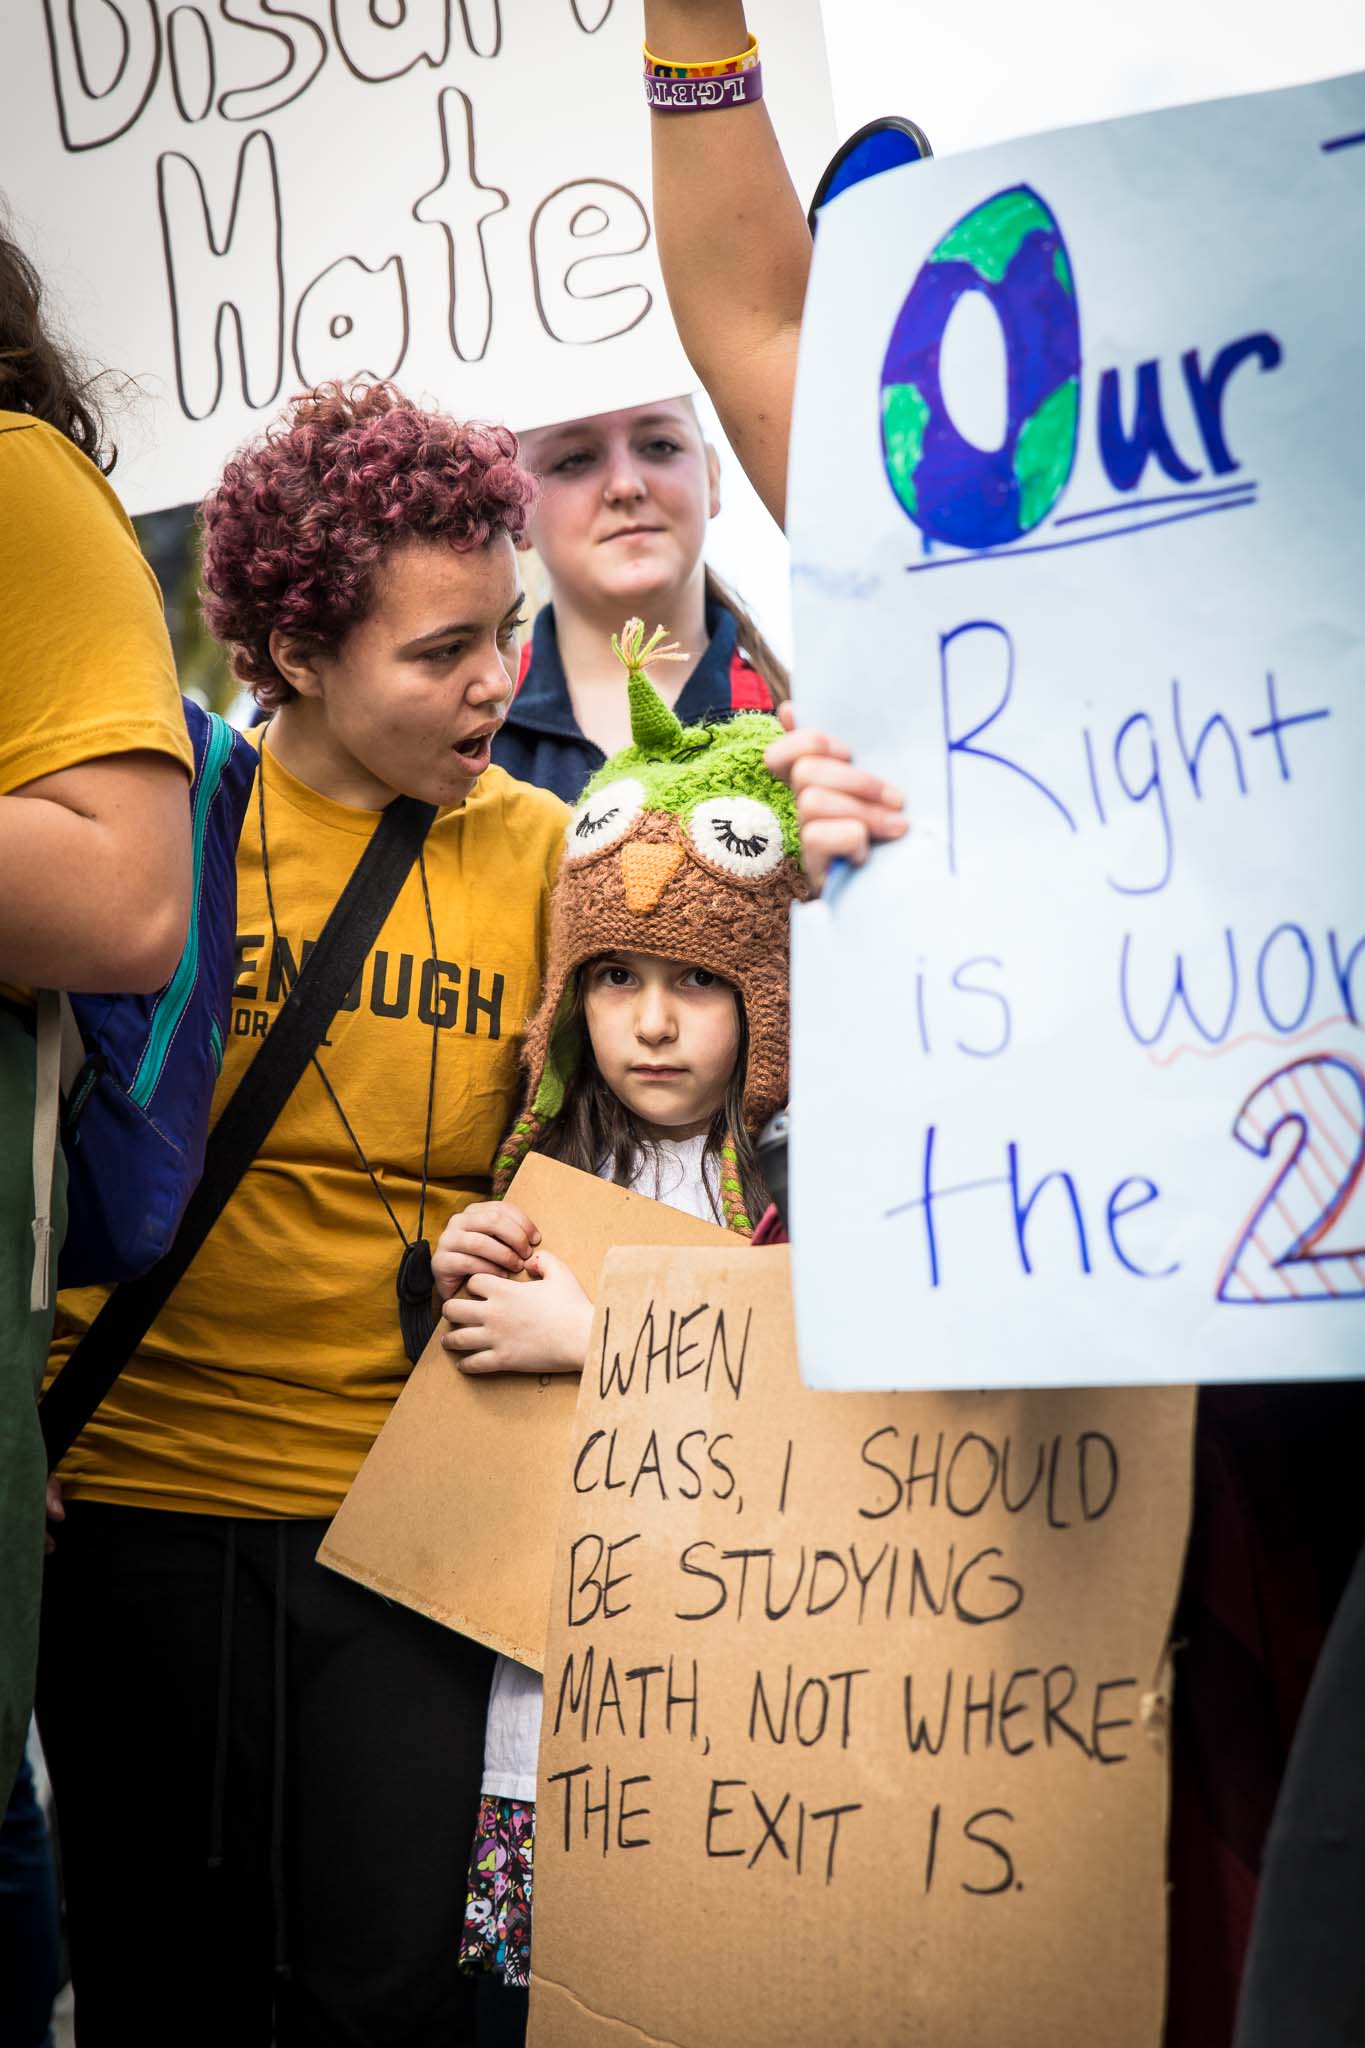 Hate
LGBTQ
Our
Right
is
the 2
ENOUGH
WHEN
CLASS, I SHOULD
BE STUDYING
MATH, NOT WHERE
THE EXIT IS.